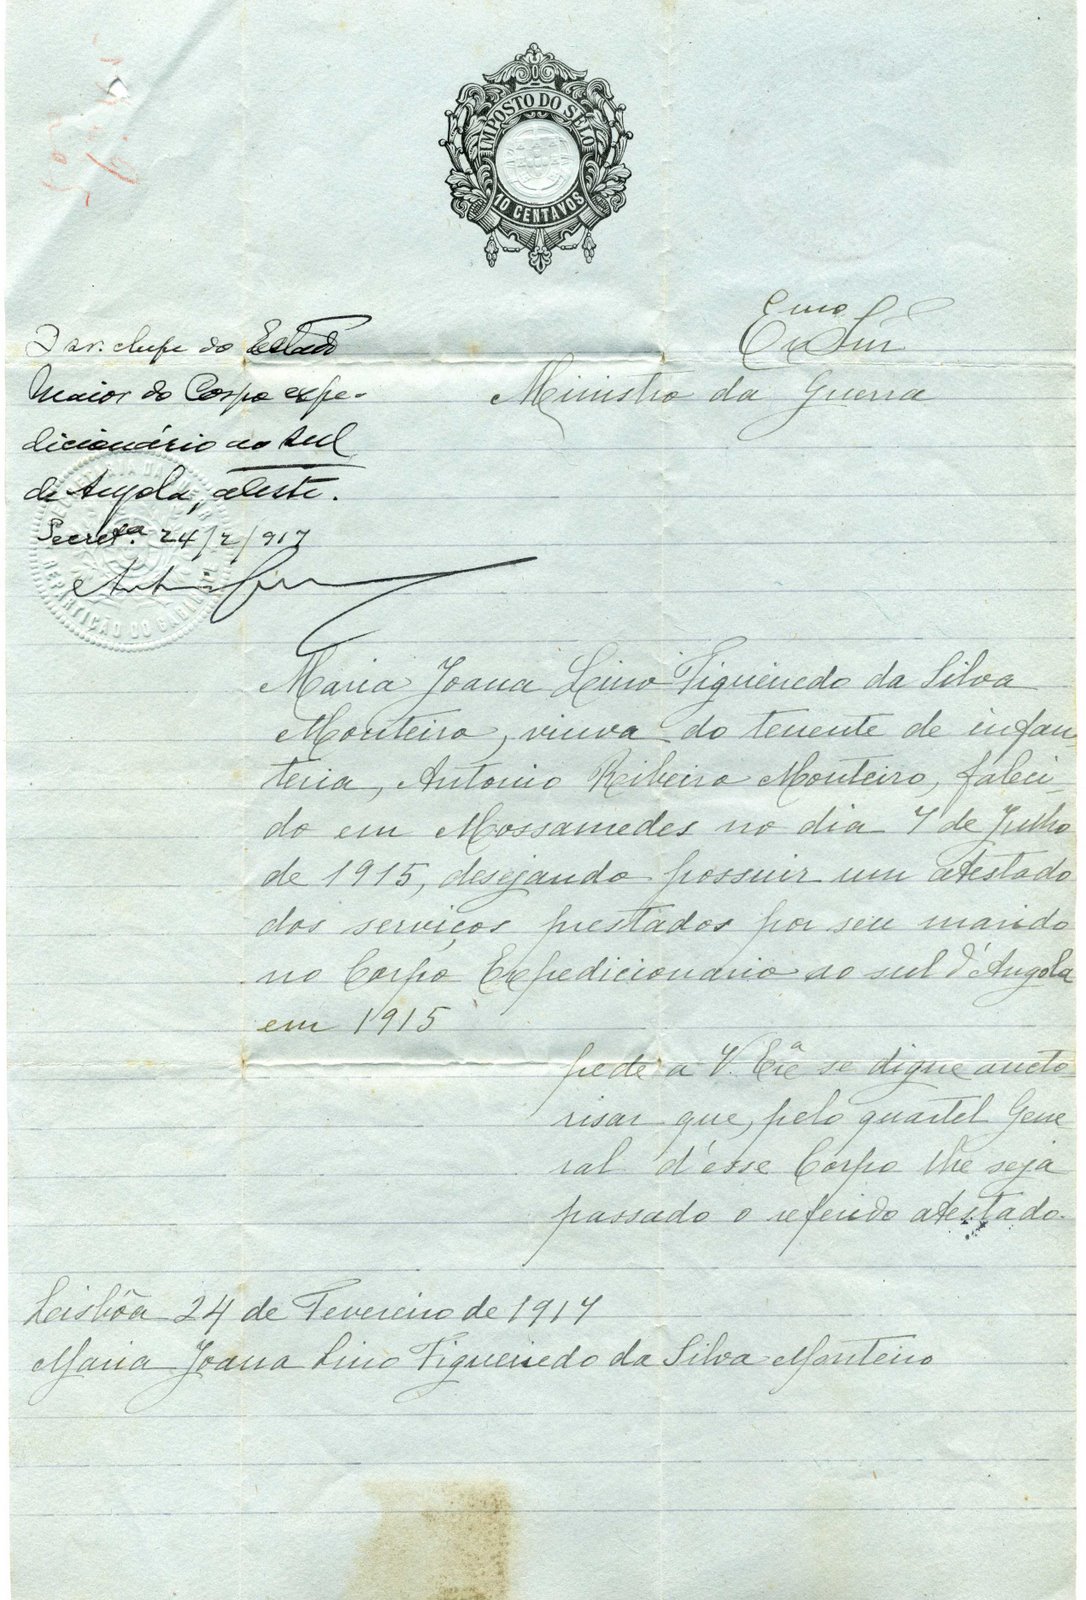 IMPOSTO DO SELO
10 CENTAVOS
Exmo
Snr
Ministro da Guerra
O sr. chefe do Estado
Maior do Corpo expe-
dicionário ao sul
de Angola, ateste.
Secret.ª 24/2/917
REPARTIÇÃO DO GABINETE
Maria Joana Lino Figueiredo da Silva
Monteiro, viuva do tenente de infan-
teria, Antonio Ribeiro Monteiro, faleci-
do em Mossamedes no dia 7 de Julho
de 1915, desejando possuir um atestado
dos serviços prestados por seu marido
no Corpo Expedicionario ao sul d'Angola
em 1915
pede a V. Excª se digne aucto-
risar que, pelo quartel Gene
ral d'esse Corpo lhe seja
passado o referido atestado.
Lisbôa 24 de Fevereiro de 1917
Maria Joana Lino Figueiredo da Silva Monteiro